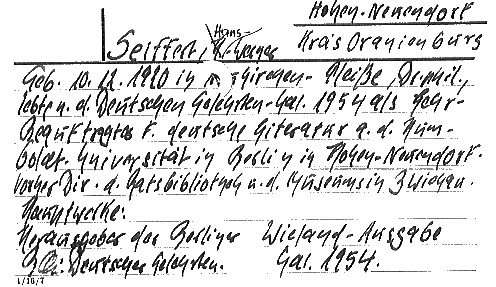 Hohen-Neuendorf
Hans-
Seiffert, H. Werner
Kreis Oranienburg
Geb. 10. 12. 1920 in Thirchen-Neiße, Dr. phil.,
lebte n. d. Deutschen Gelehrten-Kal. 1954 als Lehr-
Beauftragter f. deutsche Literatur a. d. Hum-
boldt-Universität in Berlin in Hohen-Neuendorf.
Vorher Dir. d. Ratsbibliothek u. d. Museums in Zwickau.
Hauptwerke:
Herausgeber der Berliner Wieland-Ausgabe
B: Deutscher Gelehrten. Kal. 1954.
1/16/7